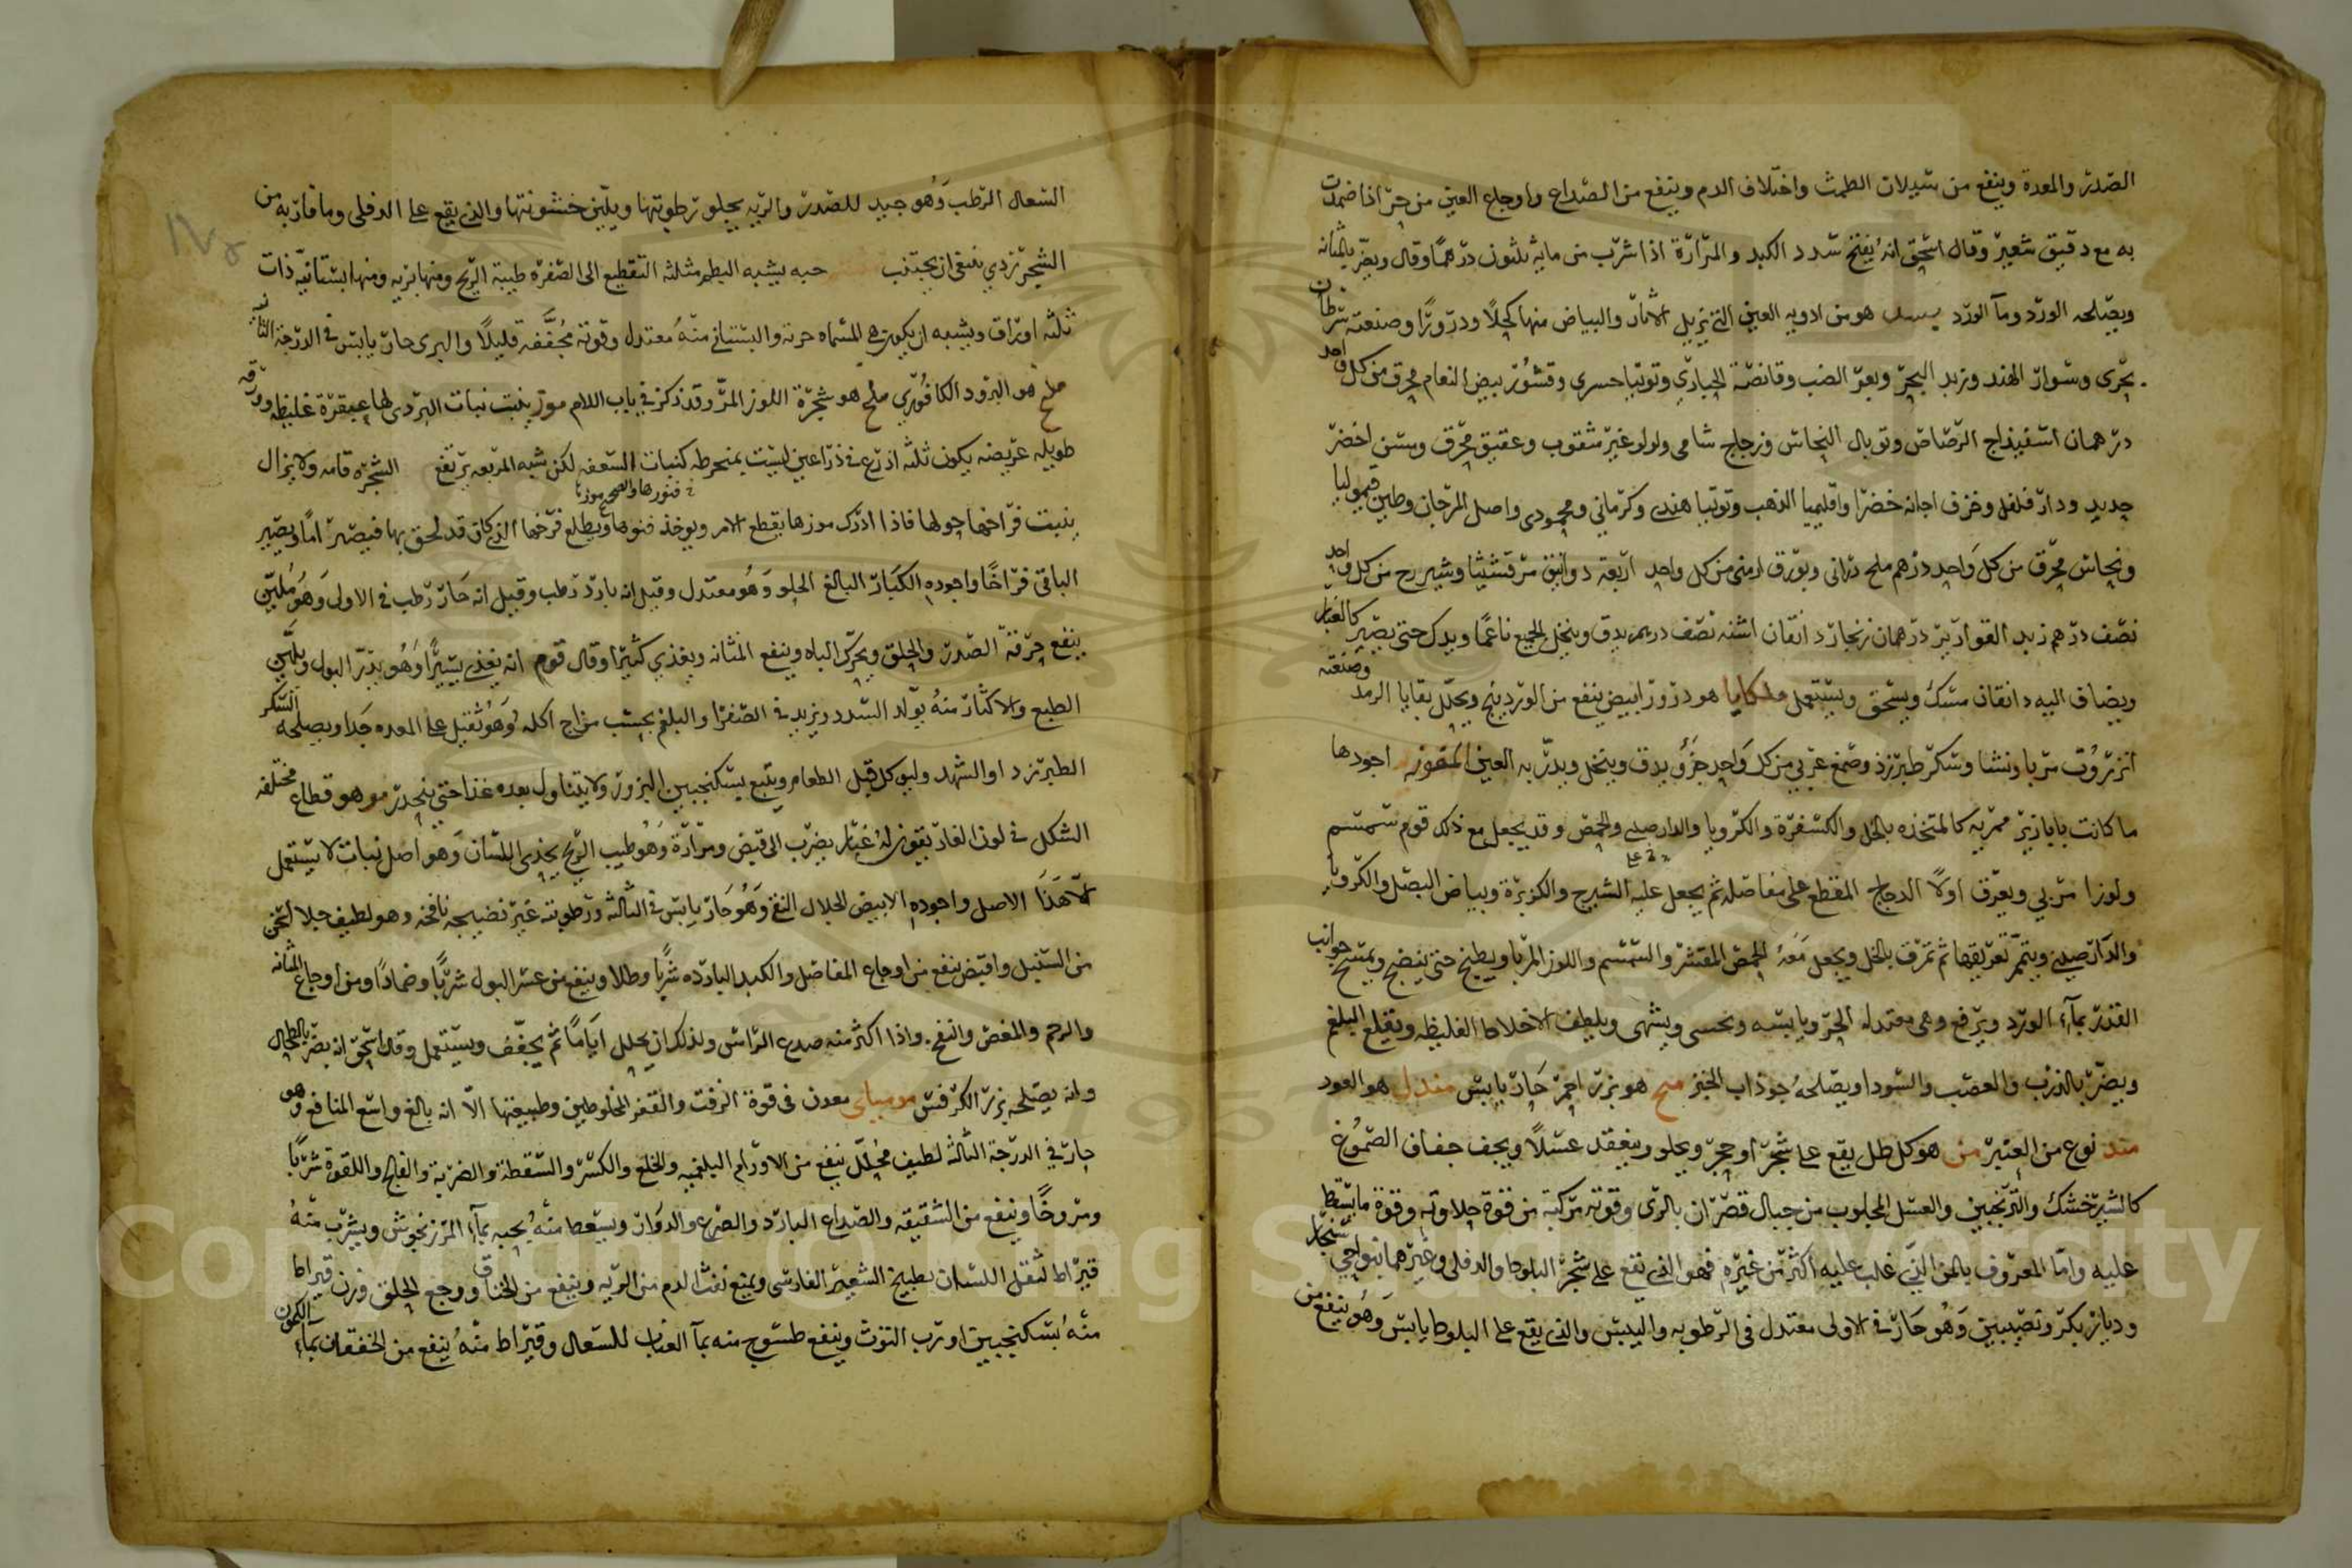 الصدر والمعدة وينفع من سيلان الطمث واختلاف الدم وينفع من الصداع واوجاع العين من حر اذا ضمدت
به مع دقيق شعير وقال اسحق انه يفتح سدد الكبد والمرارة اذا شرب من مايه ثلثون درهما وقال ويضر بالمثانه
ويصلحه الورد وما الورد هو من ادويه العين التي تزيل الاثار والبياض منها كحلا ودرورا وصنعته سرطان
بحرى وسوار الهند وزبد البحر وبعر الضب وقانصة الحبارى وتوتيا حسرى وقشور بيض النعام محرق من كل واحد
درهمان اسفيذاج الرصاص وتوبال النحاس وزجاج شامى ولولو غير مثقوب وعقيق محرق ومسن اخضر
جديد ودار فلفل وخزف اجانه خضرا واقليميا الذهب وتوتيا هندى وكرمانى ومحمودى واصل المرجان وطين قيموليا
ونحاس محرق من كل واحد درهم ملح درانى وبورق ارمنى من كل واحد اربعة دوانيق مرقشيثا وشيرج من كل واحد
نصف درهم زبد القوارير درهمان زنجار دانقان اشنه نصف درهم يدق وينخل الجميع ناعما ويدلك حتى يصير كالغبار
ويضاف اليه دانقان مسك ويسحق ويستعمل ملكايا هو درور ابيض ينفع من الوردينج ويحلل بقايا الرمد وصنعته
انزروت مربا ونشا وسكر طبرزد وصمغ عربى من كل واحد جزؤ يدق وينخل ويدر به العين اجودها
ما كانت بابازير ممريه كالمتخذه بالخل والكسفرة والكرويا والدارصينى والحمص وقد يجعل مع ذلك قوم سمسم
ولوزا مربى ويعرق اولا الدجاج المقطع على مفاصله ثم يجعل عليه الشيرج والكزبرة وبياض البصل والكرويا
والدارصينى ويتمم تعريقها ثم تمرق بالخل ويجعل معه الحمص المقشر والسمسم واللوز المربا ويطبخ حتى ينضج ويمسح جوانب
القدر بمآء الورد ويرفع وهى معتدله الحر ويابسه وتحسى ويشهى ويلطف الاخلاط الغليظه وتقلع البلغم
ويضر بالذرب والعصب والسودا ويصلحه جوذاب الخبز هو بزر احمر حار يابس مندل هو العود
مند نوع من العنبر من هو كل طل يقع على شجر او حجر ويحلو وينعقد عسلا ويجف جفاف الصموغ
كالشيرخشك والترنجبين والعسل المجلوب من جبال قصران بالرى وقوته مركبة من قوة حلاوته وقوة ما يسقط
عليه واما المعروف بالمن الذى غلب عليه اكثر من غيره فهو الذى يقع على شجر البلوط والدفلى وغيرهما بنواحى سنجار
وديار بكر ونصيبين وهو حار فى الاولى معتدل فى الرطوبه واليبس والذى يقع على البلوط يابس وهو ينفع من
السعال الرطب وهو جيد للصدر والريه يجلو رطوبتها ويلين خشونتها والذى يقع على الدفلى وما قاربه من
الشجر ردى ينبغى ان يجتنب حبه يشبه البطم مثلثه التقطيع الى الصفره طيبة الريح ومنها بريه ومنها بستانيه ذات
ثلثه اوراق ويشبه ان يكون هى المسماه حرنه والبستانى منه معتدل وقوته مجففة قليلا والبرى حار يابس فى الدرجة الثانيه
ملح هو البرود الكافورى ملح هو شجرة اللوز المر وقد ذكر فى باب اللام موز ينبت نبات البردى لها عبقرة غليظه وورقه
طويله عريضه يكون ثلثه اذرع فى ذراعين ليست بمنخرطه كنبات السعف لكن شبه المربعه يرتفع الشجره قامه ولا يزال
ينبت فراخها حولها فاذا ادرك موزها يقطع الام ويوخذ قنوها ويطلع فرخها الذى كان قد لحق بها فيصير اما ويصير
الباقى فراخا واجوده الكبار البالغ الحلو وهو معتدل وقيل انه بارد رطب وقيل انه حار رطب فى الاولى وهو ملين
ينفع حرقة الصدر والحلق ويحرك الباه وينفع المثانه ويغذى كثيرا وقال قوم انه يغذى يسيرا وهو يدر البول ويلين
الطبع والاكثار منه يولد السدد ويزيد فى الصفرا والبلغم بحسب مزاج اكله وهو ثقيل على المعده جدا ويصلحه السكر
الطبرزد او الشهد وليوكل قبل الطعام ويتبع بسكنجبين البزور ولا يتناول بعده غذا حتى ينحدر مو هو قطاع مختلفه
الشكل فى لون الغاريقون له غبار يضرب الى قبض ومرارة وهو طيب الريح يحذى اللسان وهو اصل نبات لا يستعمل
الا هذا الاصل واجوده الابيض الحلال النقى وهو حار يابس فى الثالثه ورطوبته غير نضيجه نافخه وهو لطيف جلا اسخن
من السنبل واقبض ينفع من اوجاع المفاصل والكبد البارده شربا وطلا وينفع من عسر البول شربا وضمادا ومن اوجاع المثانه
والرحم والمغص والنفخ واذا اكثر منه صدع الراس ولذلك ان يحلل اياما ثم يجفف ويستعمل وقال اسحق انه يضر بالطحال
وانه يصلحه بزر الكرفس موميائى معدن فى قوة الزفت والقفر المخلوطين وطبيعتها الا انه بالغ واسع المنافع وهو
حار فى الدرجة الثالثه لطيف محلل ينفع من الاورام البلغميه والخلع والكسر والسقطة والضربة والفالج واللقوة شربا
ومروخا وينفع من الشقيقه والصداع البارد والصرع والدوار ويسعط منه بحبه بمآء المرزنجوش ويشرب منه
قيراط لثقل اللسان بطبيخ الشعير الفارسى ويمنع نفث الدم من الريه وينفع من الخناق ووجع الحلق وزن قيراط
منه بسكنجبين او رب التوث وينفع طسوج منه بمآ العناب للسعال وقيراط منه ينفع من الخفقان بمآء الكمون